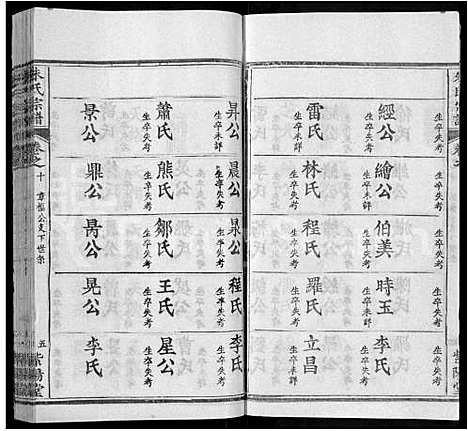 經公 生卒失考
繪公 生卒失考
伯美 生卒失考
時玉 生卒失考
李氏 生卒失考
雷氏 生卒未詳
林氏 生卒失考
程氏 生卒失考
羅氏 生卒未詳
立昌 生卒失考
昇公 生卒未詳
晨公 生卒失考
程氏 生卒失考
李氏 生卒失考
蕭氏 生卒失考
熊氏 生卒失考
鄒氏 生卒失考
王氏 生卒失考
星公 生卒失考
景公
鼎公
晃公
李氏
朱氏宗譜
卷之
十
公支下世系
五
紫陽堂